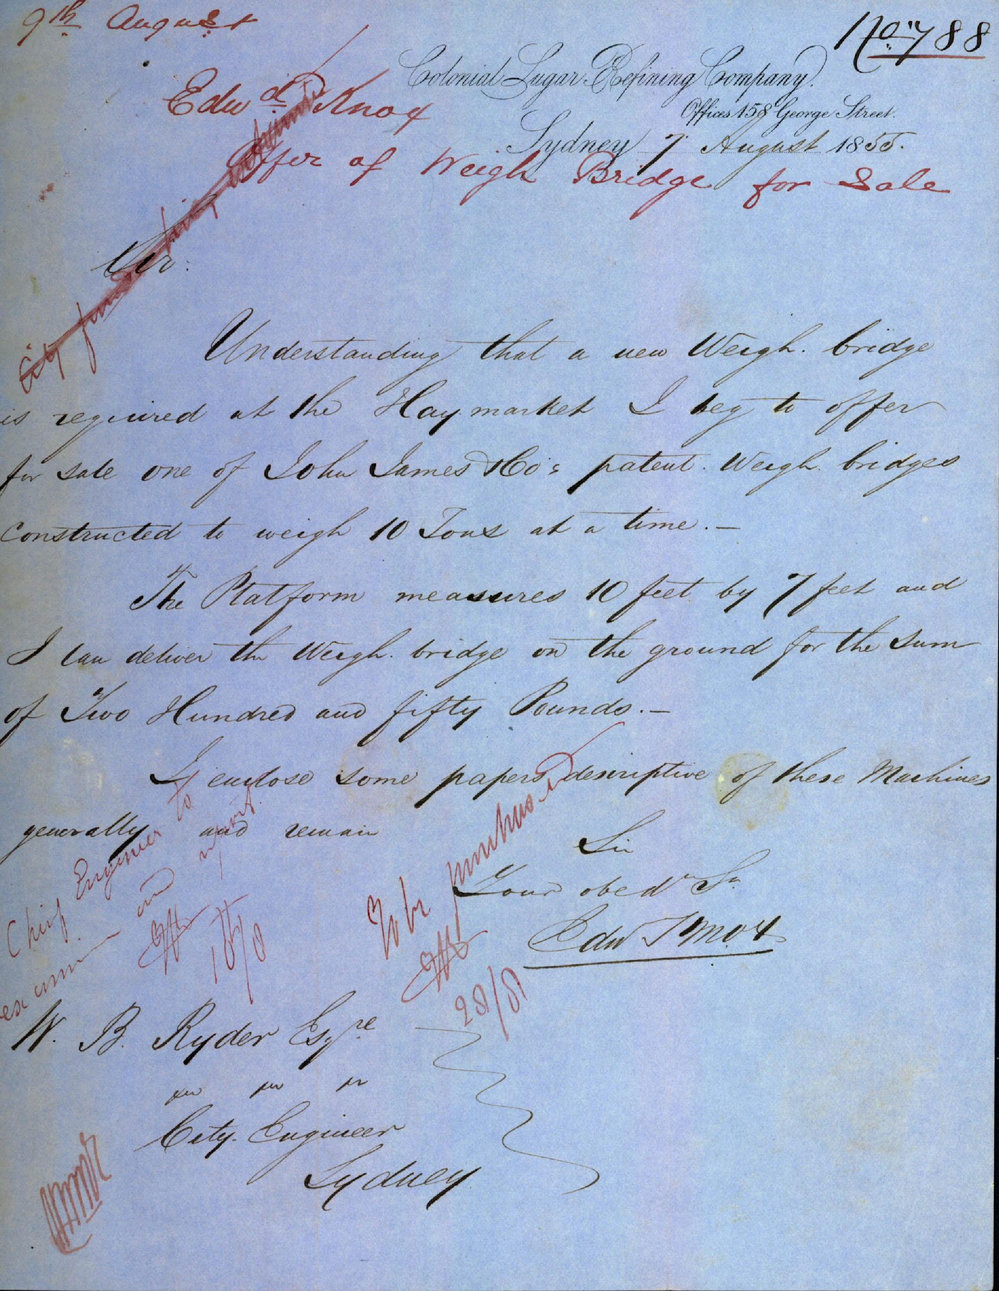 9th August
No. 788
Colonial Sugar Refining Company.
Edwd Knox
Offices 158 George Street.
Sydney 7 August 1855.
Offer of Weigh Bridge for Sale
Sir.
Understanding that a new Weigh. bridge
is required at the Haymarket I beg to offer
for sale one of John James & Co's patent. Weigh. bridges
constructed to weigh 10 Tons at a time. —
The Platform measures 10 feet by 7 feet and
I can deliver the Weigh. bridge on the ground for the sum
of Two Hundred and fifty Pounds. —
I enclose some papers descriptive of these Machines
generally, and remain
Sir
Your obedt St
Edw Knox
Chief Engineer to
examine and report.
18/8
To be purchased
28/8
W. B. Ryder Esqre
City. Engineer
Sydney